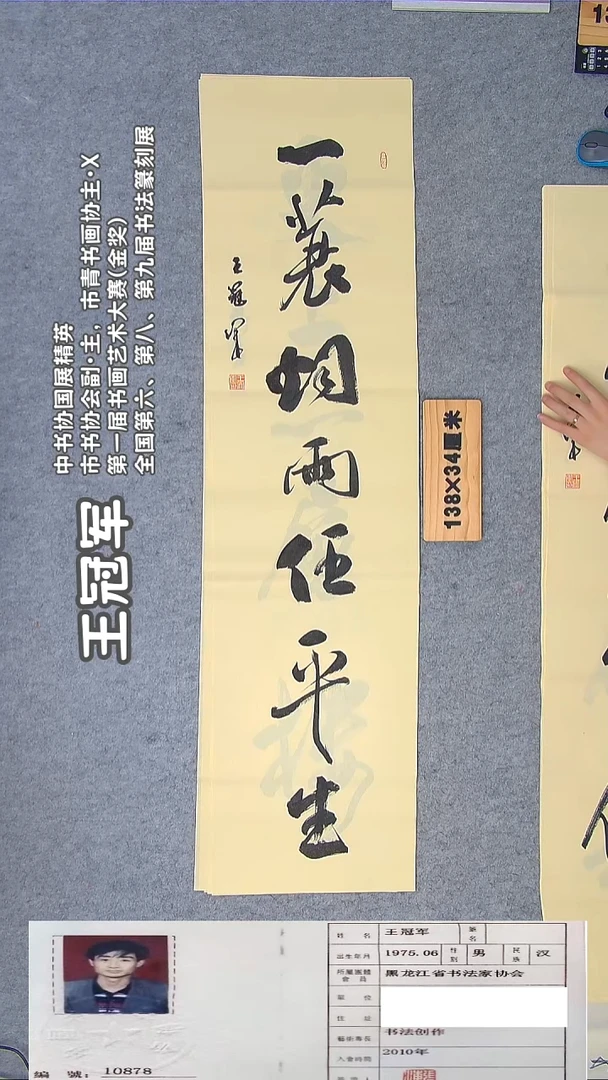 一蓑烟雨任平生
王冠军
138×34厘米
13
王冠军
中书协国展精英
市书协会副·主，市青书画协主·X
第一届书画艺术大赛(金奖)
全国第六、第八、第九届书法篆刻展
編 號：10878
姓 名 王冠军 筆名
出生年月 1975.06 性别 男 民族 汉
所屬團體會員 黑龙江省书法家协会
單 位
住 址
藝術專長 书法创作
入會時間 2010年